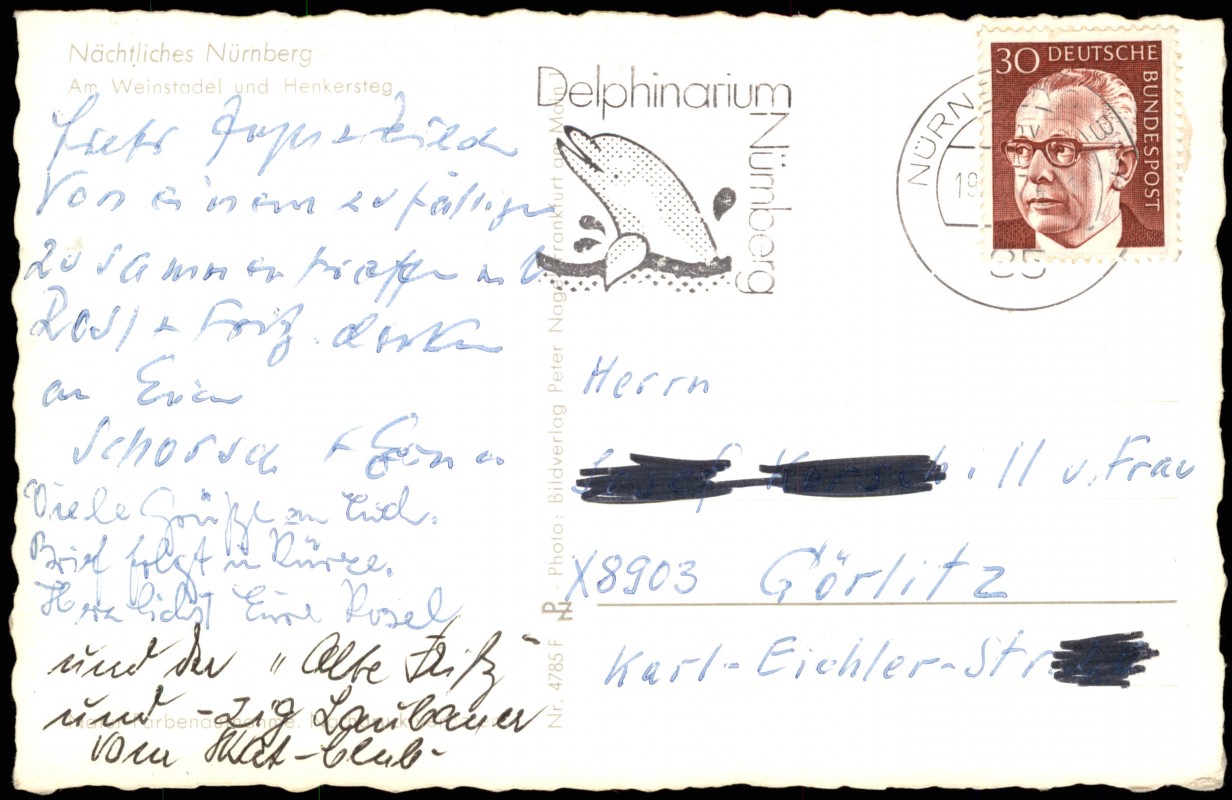 Nächtliches Nürnberg
Am Weinstadel und Henkersteg
Von einem zufälligen
zusammentreffen mit
Rosl + Fritz denken
an Euch
Schorsch +
Viele Grüße an Euch.
Brief folgt in Kürze.
Herzlichst Eure Rosel
und der "Alte Fritz"
und -zig Laubaner
vom Skat-Club-
Delphinarium
Nürnberg
NÜRN
30 DEUTSCHE
BUNDESPOST
85
Nr. 4785 F
- Photo: Bildverlag Peter Nagel, Frankfurt am Main
Herrn
II u. Frau
X8903 Görlitz
Karl-Eichler-Str